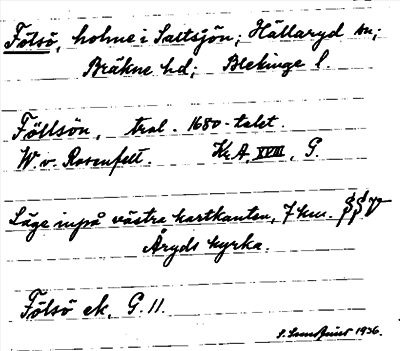 Fölsö, holme i Saltsjön; Hällaryd sn;
Bräkne hd; Blekinge l.
Föllsön, trol. 1680-talet.
W. v. Rosenfelt. Kr. A. XVIII, G.
Läge inpå västra kartkanten, 7 km.
Åryds kyrka.
Fölsö ek, G. 11.
1936.